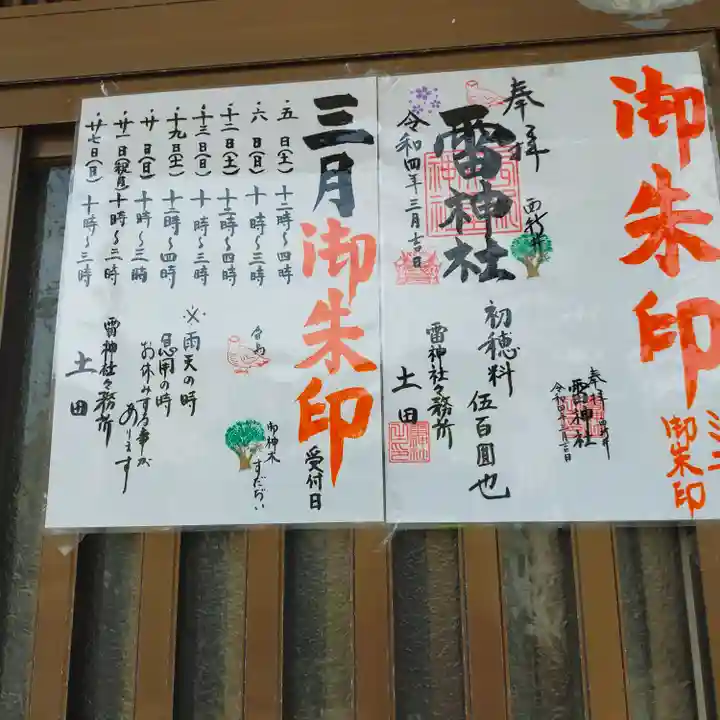 御朱印
ミニ
御朱印
奉拝 西新井
雷神社
令和四年三月吉日
奉拝 西新井
雷神社
令和四年三月吉日
初穂料 伍百圓也
雷神社々務所
土田
三月御朱印受付日
・五日(土)十二時〜四時
・六日(日)十時〜三時
・十二日(土)十二時〜四時
・十三日(日)十時〜三時
・十九日(土)十二時〜四時
・廿日(日)十時〜三時
・廿一日(祝月)十時〜三時
・廿七日(日)十時〜三時
御神木
すだぢい
※雨天の時
急用の時
お休みする事が
あります
雷神社々務所
土田